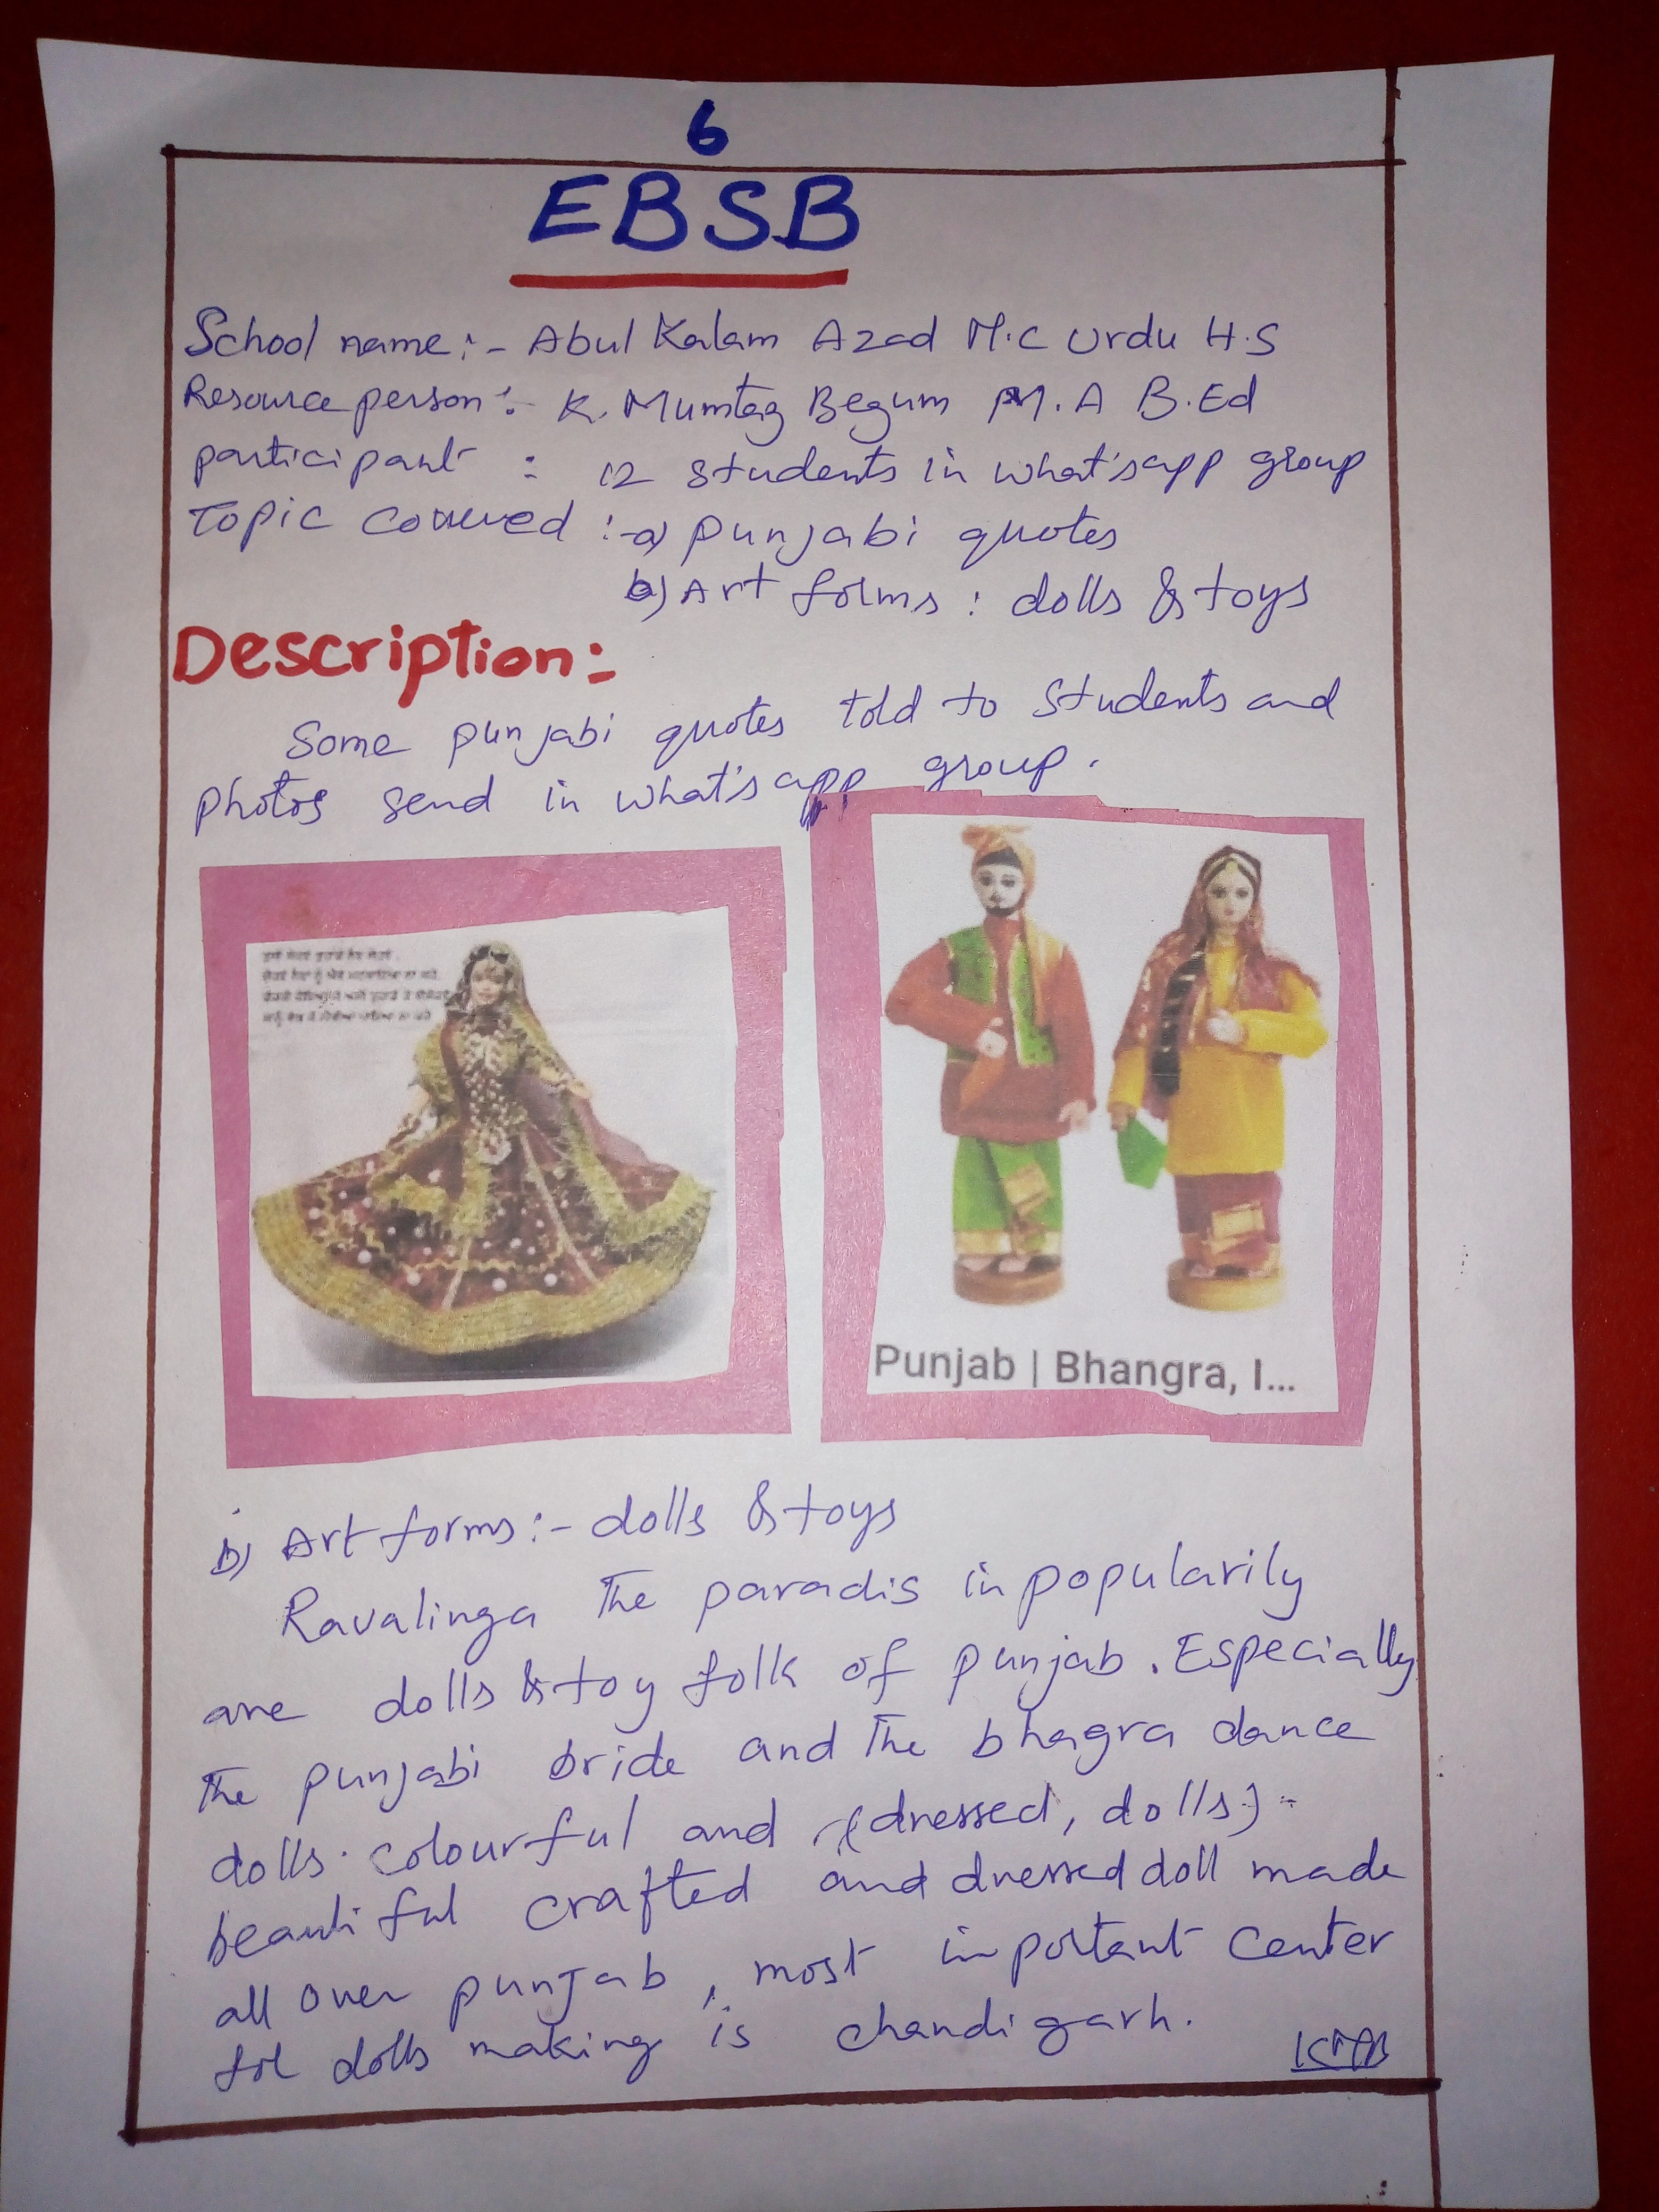 6
EBSB
School name:- Abul Kalam Azad M.C Urdu H.S
Resource person:- K. Mumtaz Begum M.A B.Ed
participant : 12 students in what'sapp group
Topic covered :-a) punjabi quotes
b) Art forms : dolls & toys
Description:-
Some punjabi quotes told to students and
photos send in what'sapp group.
Punjab | Bhangra, I...
b) Art forms:- dolls & toys
Ravalinga The paradis in popularily
are dolls & toy folk of punjab. Especially
The punjabi bride and The bhagra dance
dolls. colourful and (dressed, dolls)-
beautiful crafted and dressed doll made
all over punjab, most important Center
for dolls making is chandigarh.
KMB